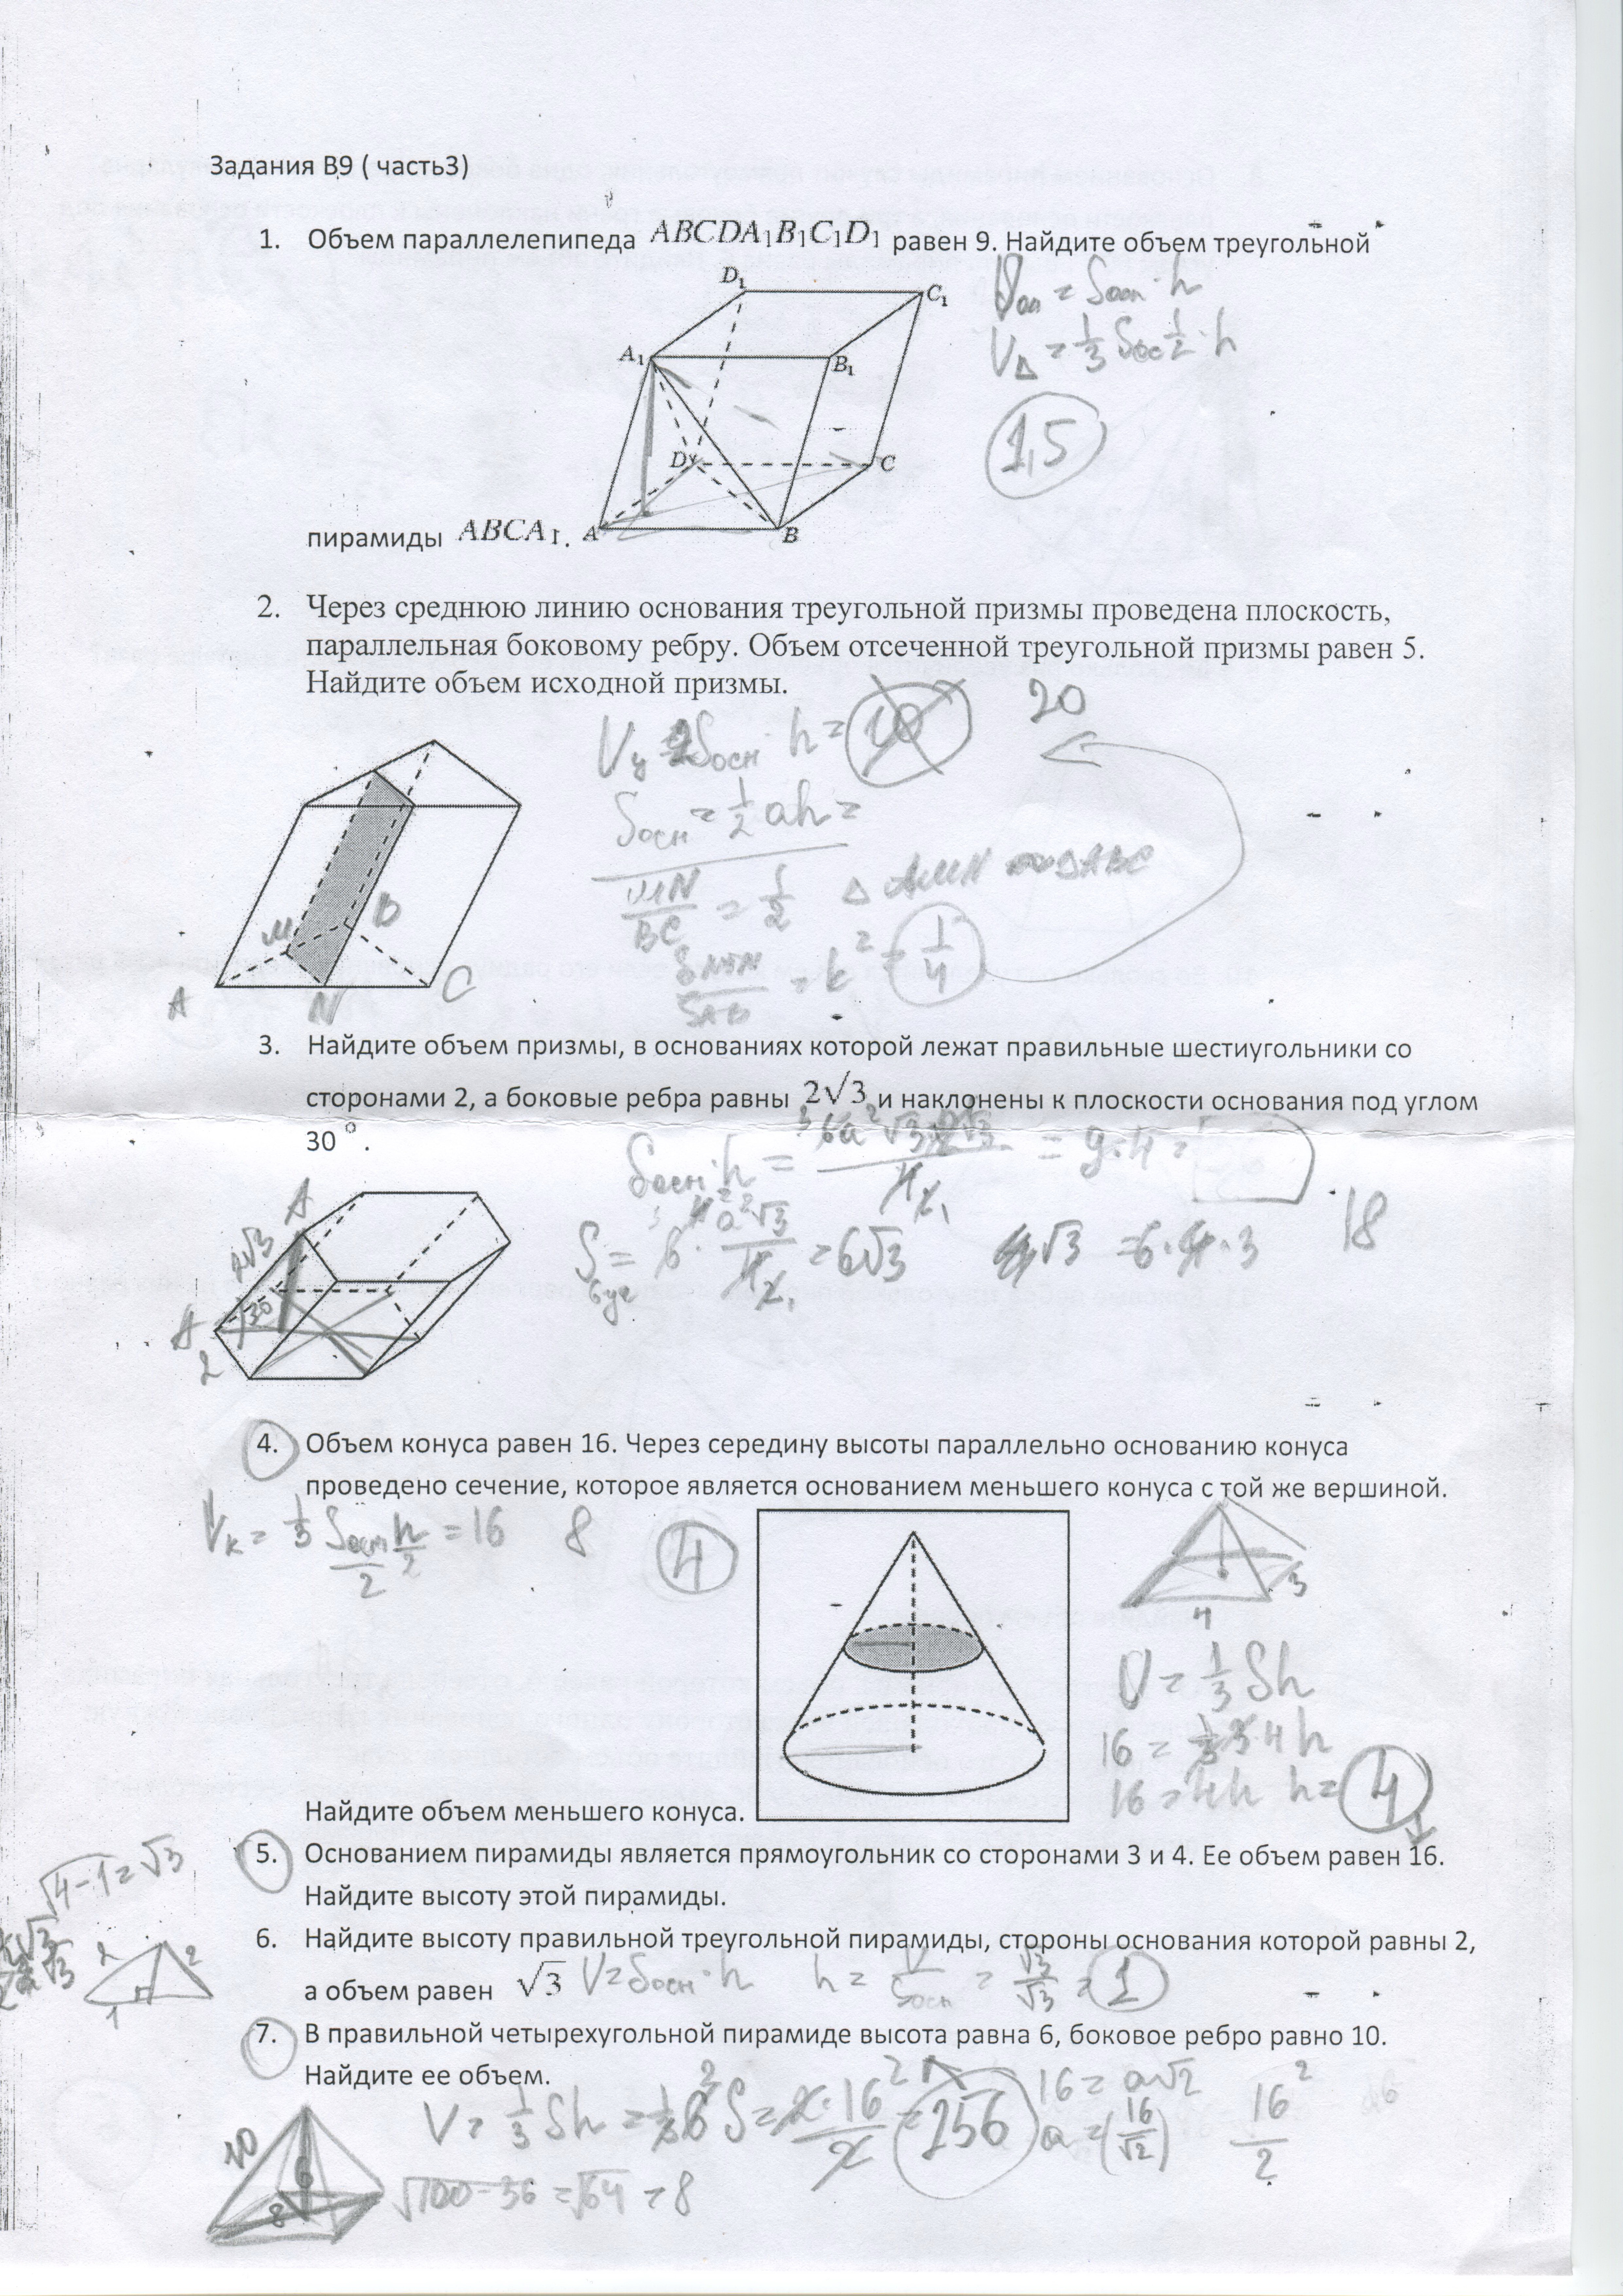 Задания В9 ( часть3)
1. Объем параллелепипеда ABCDA₁B₁C₁D₁ равен 9. Найдите объем треугольной
D₁
C₁
A₁
B₁
D
C
A
B
= Sосн · h
V△ = 1/3 Sос 1/2 · h
1,5
пирамиды ABCA₁.
2. Через среднюю линию основания треугольной призмы проведена плоскость,
параллельная боковому ребру. Объем отсеченной треугольной призмы равен 5.
Найдите объем исходной призмы.
20
Sосн · h = 10
Sосн = 1/2 ah =
MN/BC = 1/2 △ AMN ∾ △ABC
= k² = 1/4
M
B
A
N
C
3. Найдите объем призмы, в основаниях которой лежат правильные шестиугольники со
сторонами 2, а боковые ребра равны 2√3 и наклонены к плоскости основания под углом
30°.
Sосн · h = = 9·4 =
18
S6уг = 6 · a²√3/4 = 6√3
= 6 · 4 · 3
A
2√3
30
2
4. Объем конуса равен 16. Через середину высоты параллельно основанию конуса
проведено сечение, которое является основанием меньшего конуса с той же вершиной.
Vк = 1/3 Sосн/2 h/2 = 16 8
4
3
4
V = 1/3 Sh
16 = 1/3 3 4 h
16 = 4h h = 4
Найдите объем меньшего конуса.
5. Основанием пирамиды является прямоугольник со сторонами 3 и 4. Ее объем равен 16.
Найдите высоту этой пирамиды.
√4-1 = √3
2
2
1
6. Найдите высоту правильной треугольной пирамиды, стороны основания которой равны 2,
а объем равен √3 V = Sосн · h h = V/Sосн = √3/√3 = 1
7. В правильной четырехугольной пирамиде высота равна 6, боковое ребро равно 10.
Найдите ее объем.
V = 1/3 Sh = 1/3 6 S = 2 · 16²/2 = 256
16 = a√2
a = (16/√2)
16²/2
10
6
8
√100-36 = √64 = 8